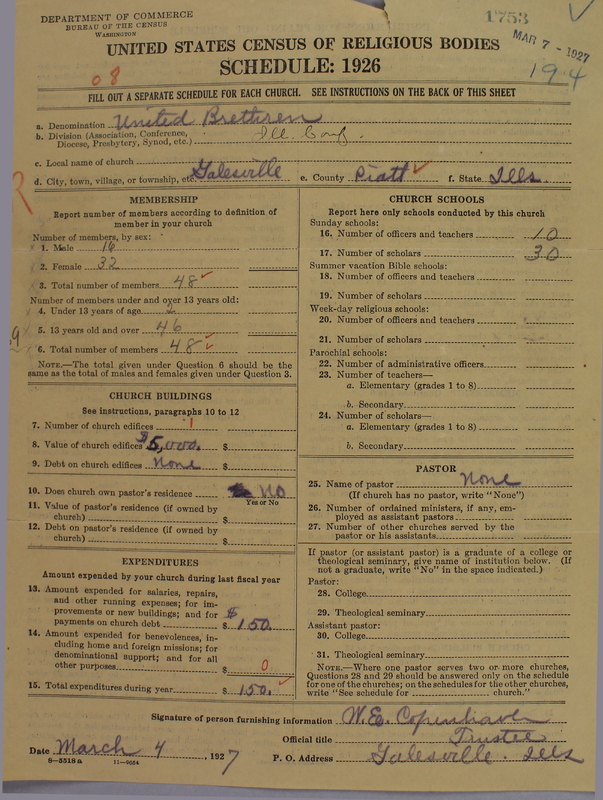 DEPARTMENT OF COMMERCE
BUREAU OF THE CENSUS
WASHINGTON
1753
MAR 7 - 1927
UNITED STATES CENSUS OF RELIGIOUS BODIES
SCHEDULE: 1926
08
19-4
FILL OUT A SEPARATE SCHEDULE FOR EACH CHURCH. SEE INSTRUCTIONS ON THE BACK OF THIS SHEET
a. Denomination United Brethren
b. Division (Association, Conference, Diocese, Presbytery, Synod, etc.) Ill. Conf.
c. Local name of church
d. City, town, village, or township, etc. Galesville e. County Piatt f. State Ills.
MEMBERSHIP
Report number of members according to definition of member in your church
Number of members, by sex:
1. Male 16
2. Female 32
3. Total number of members 48
Number of members under and over 13 years old:
4. Under 13 years of age 2
5. 13 years old and over 46
6. Total number of members 48
NOTE.—The total given under Question 6 should be the same as the total of males and females given under Question 3.
CHURCH BUILDINGS
See instructions, paragraphs 10 to 12
7. Number of church edifices 1
8. Value of church edifices $5,000. $
9. Debt on church edifices None $
10. Does church own pastor's residence No
Yes or No
11. Value of pastor's residence (if owned by church) $
12. Debt on pastor's residence (if owned by church) $
EXPENDITURES
Amount expended by your church during last fiscal year
13. Amount expended for salaries, repairs, and other running expenses; for improvements or new buildings; and for payments on church debt $ 150.
14. Amount expended for benevolences, including home and foreign missions; for denominational support; and for all other purposes $ 0
15. Total expenditures during year $ 150.
CHURCH SCHOOLS
Report here only schools conducted by this church
Sunday schools:
16. Number of officers and teachers 10
17. Number of scholars 30
Summer vacation Bible schools:
18. Number of officers and teachers
19. Number of scholars
Week-day religious schools:
20. Number of officers and teachers
21. Number of scholars
Parochial schools:
22. Number of administrative officers
23. Number of teachers—
a. Elementary (grades 1 to 8)
b. Secondary
24. Number of scholars—
a. Elementary (grades 1 to 8)
b. Secondary
PASTOR
25. Name of pastor None
(If church has no pastor, write "None")
26. Number of ordained ministers, if any, employed as assistant pastors
27. Number of other churches served by the pastor or his assistants
If pastor (or assistant pastor) is a graduate of a college or theological seminary, give name of institution below. (If not a graduate, write "No" in the space indicated.)
Pastor:
28. College
29. Theological seminary
Assistant pastor:
30. College
31. Theological seminary
NOTE.—Where one pastor serves two or more churches, Questions 28 and 29 should be answered only on the schedule for one of the churches; on the schedules for the other churches, write "See schedule for church."
Signature of person furnishing information W. E. Copenhaver
Official title Trustee
Date March 4, 1927 P. O. Address Galesville. Ills
8—5518a 11—9054